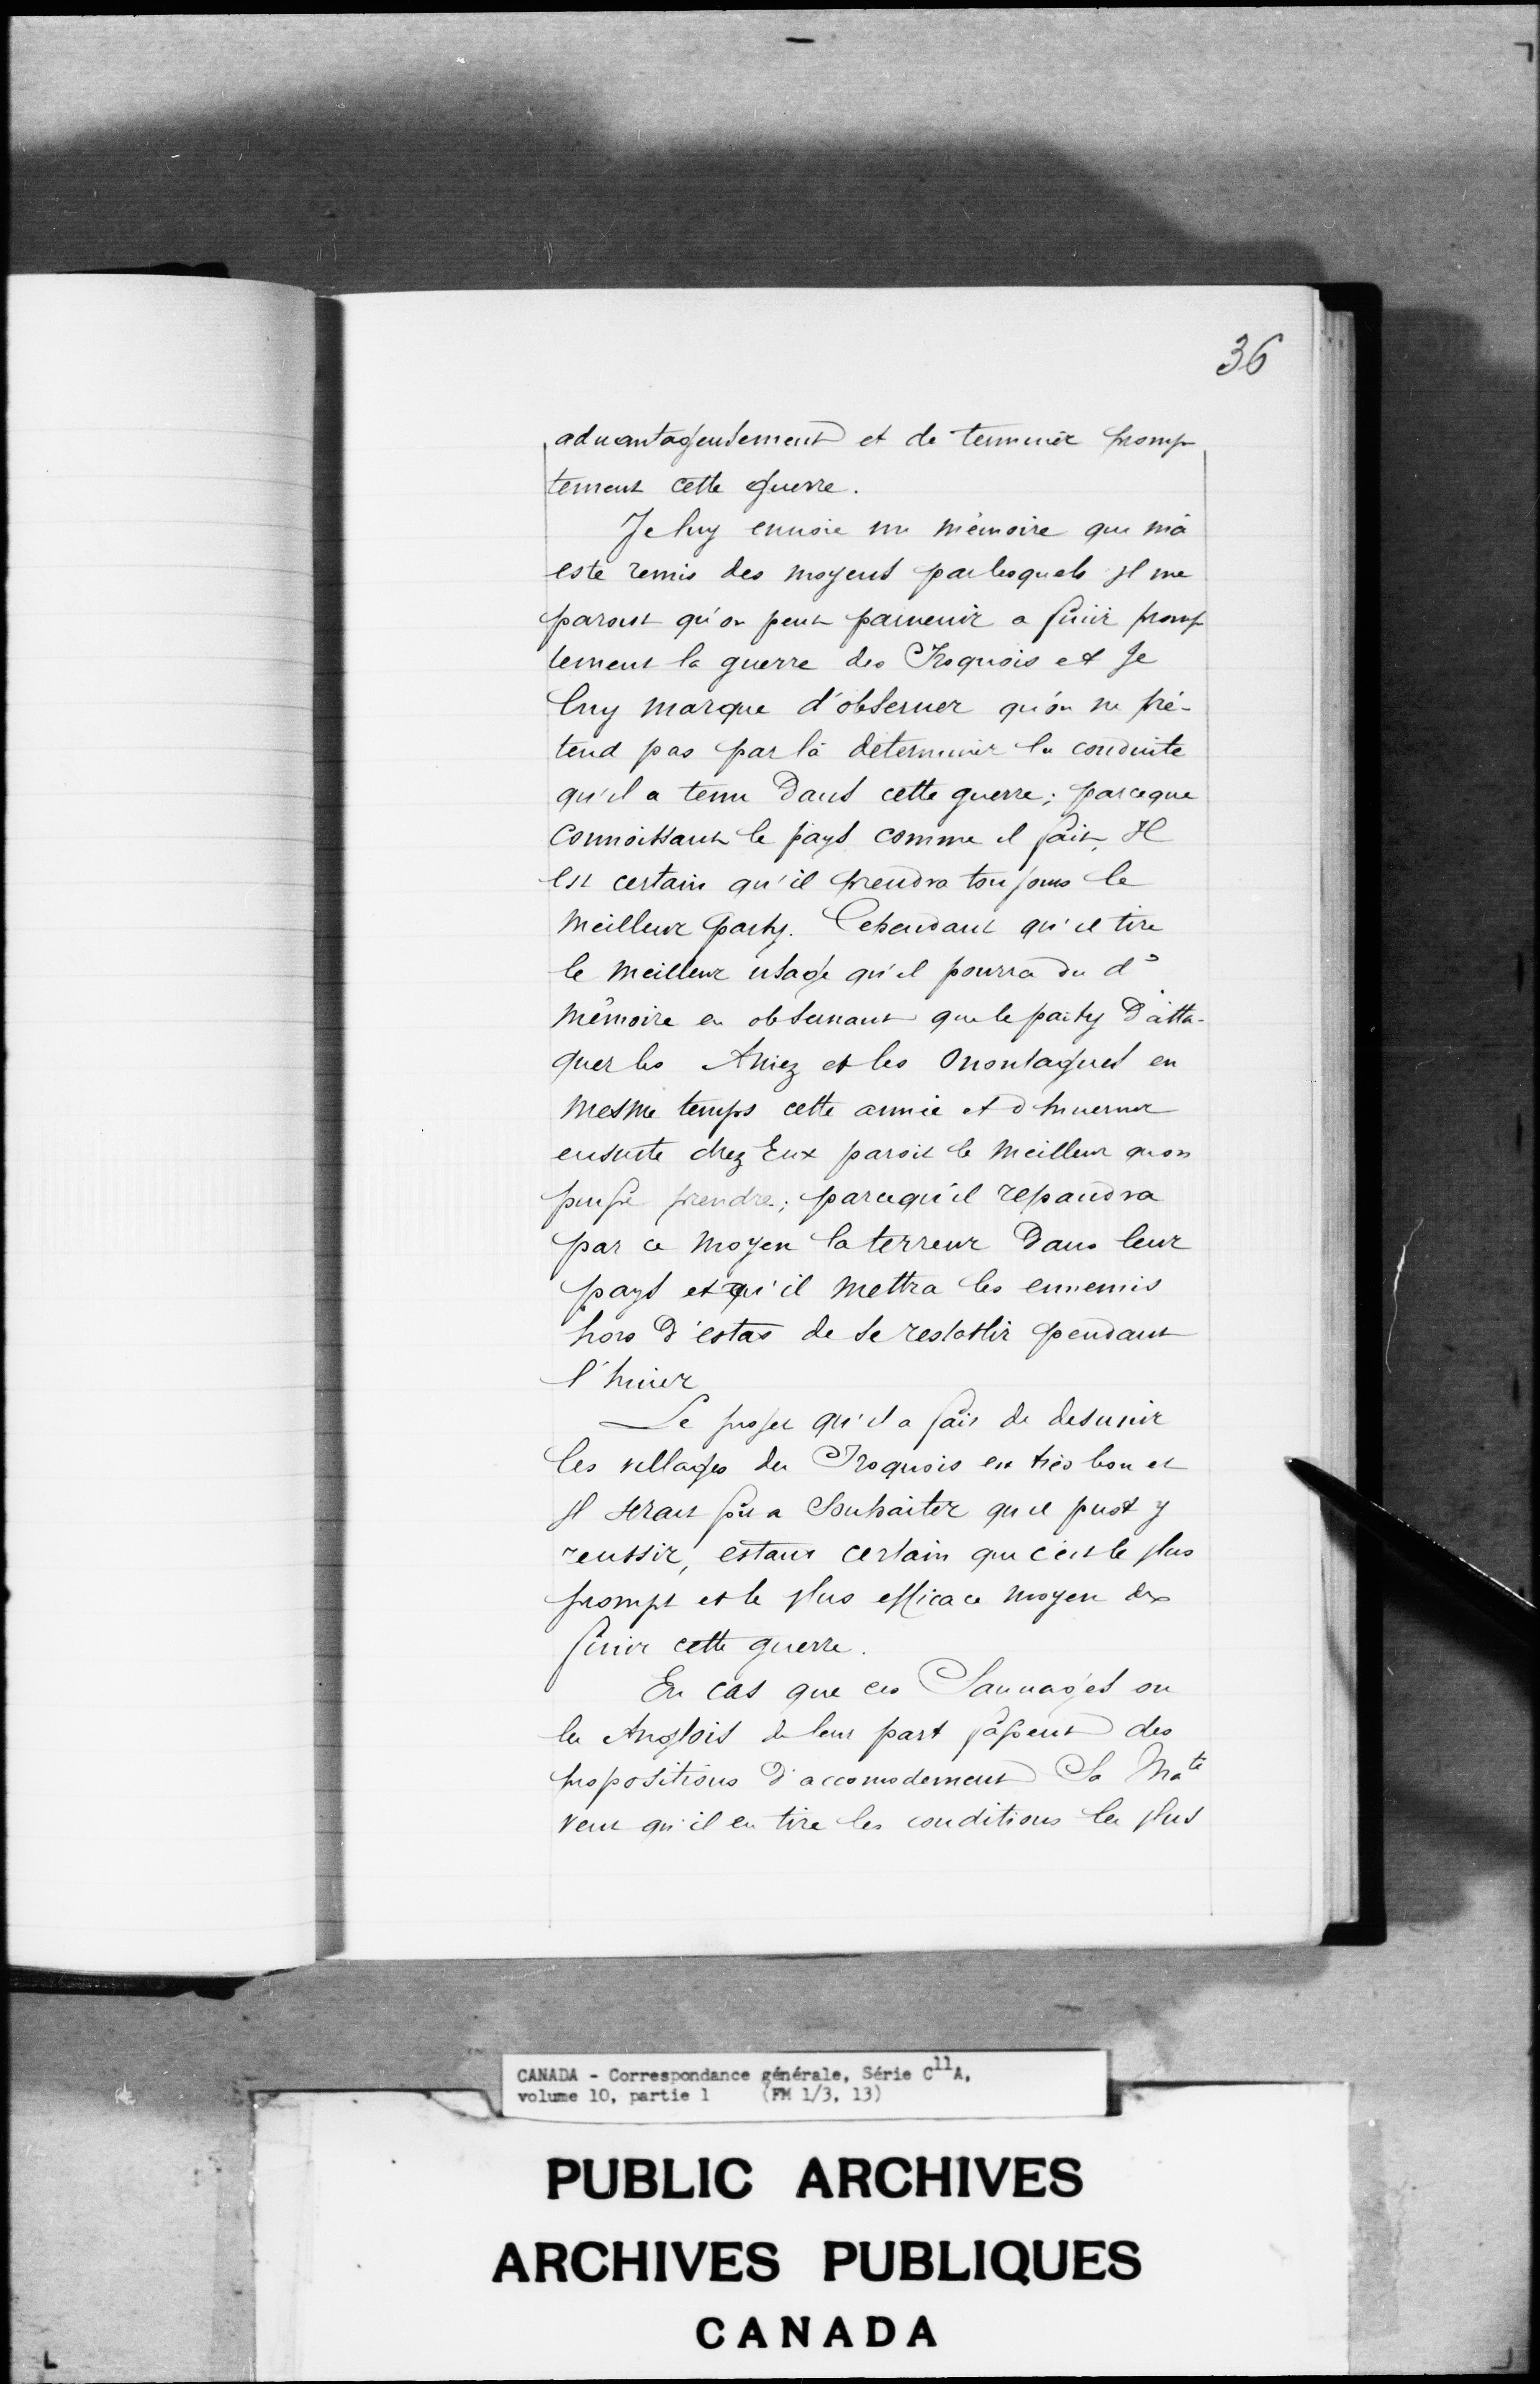 36
aduantageusement et de terminer promp
tement cette guerre.
Je luy enuoie un mémoire qui m'a
este remis des moyens par lesquels Il me
paroist qu'on peut paruenir a finir promp
tement la guerre des Iroquois et Je
luy marque d'obseruer qu'on ne pré-
tend pas par là determiner la conduite
qu'il a tenu dans cette guerre; parceque
connoissant le pays comme il fait, Il
est certain qu'il prendra toujours le
meilleur party. Cependant qu'il tire
le meilleur usage qu'il pourra du d°
mémoire en obseruant que le party d'atta-
quer les Aniez et les Onontagues en
mesme temps cette année et d'hiuerner
ensuite chez Eux paroit le meilleur qu'on
puisse prendre; parcequ'il repandra
par ce moyen la terreur dans leur
pays et qu'il mettra les ennemis
hors d'estat de se restablir pendant
l'hiuer
Le projet qu'il a fait de desunir
les villages des Iroquois est très bon et
Il serait fort a souhaiter qu'il pust y
reussir, estant certain que c'est le plus
prompt et le plus efficace moyen de
finir cette guerre.
En cas que ces Sauuages ou
les Anglois de leur part fassent des
propositions d'accomodement Sa Ma^te
veut qu'il en tire les conditions les plus
CANADA - Correspondance générale, Série C^11A,
volume 10, partie 1 (FM 1/3, 13)
PUBLIC ARCHIVES
ARCHIVES PUBLIQUES
CANADA